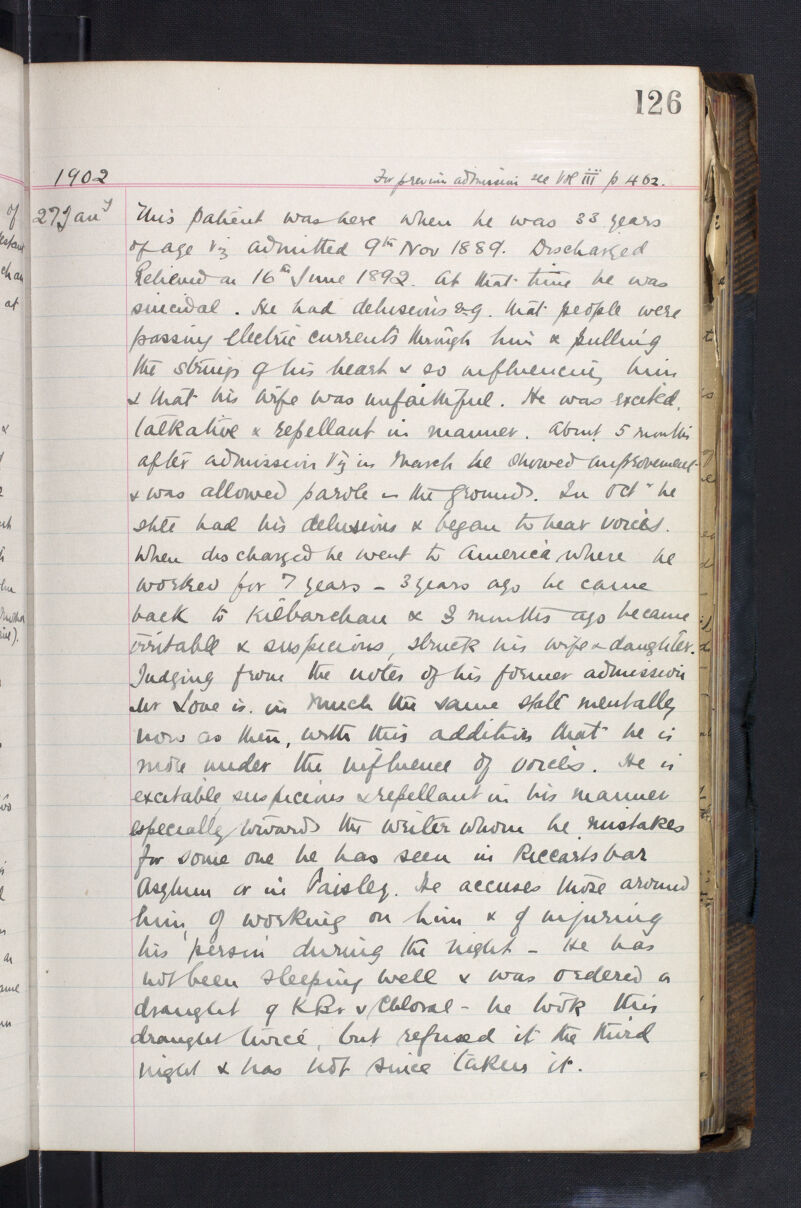 126
1902
For previous admission see Vol III p 462.
27 Jany
This patient was here when he was 33 years
of age viz admitted 9th Nov 1889. Discharged
Relieved on 16th June 1892. At that time he was
suicidal. He had delusions e.g. that people were
passing electric currents through him & pulling
the strings of his heart & so influencing him
& that his wife was unfaithful. He was excited,
talkative & repellant in manner. About 5 months
after admission viz in March he showed improvement
& was allowed parole in the grounds. In Octr he
still had his delusions & began to hear voices.
When discharged he went to America where he
worked for 7 years – 3 years ago he came
back to Kilbarchan & 3 months ago became
irritable & suspicious, struck his wife & daughter.
Judging from the notes of his former admission
Mr Love is in much the same state mentally
now as then, with this addition that he is
more under the influence of voices. He is
excitable suspicious & repellant in his manner
especially towards the writer whom he mistakes
for some one he has seen in Riccartsbar
Asylum or in Paisley. He accuses those around
him of working on him & of injuring
his person during the night – He has
not been sleeping well & was ordered a
draught of KBr & Chloral – he took this
draught twice, but refused it the third
night & has not since taken it.